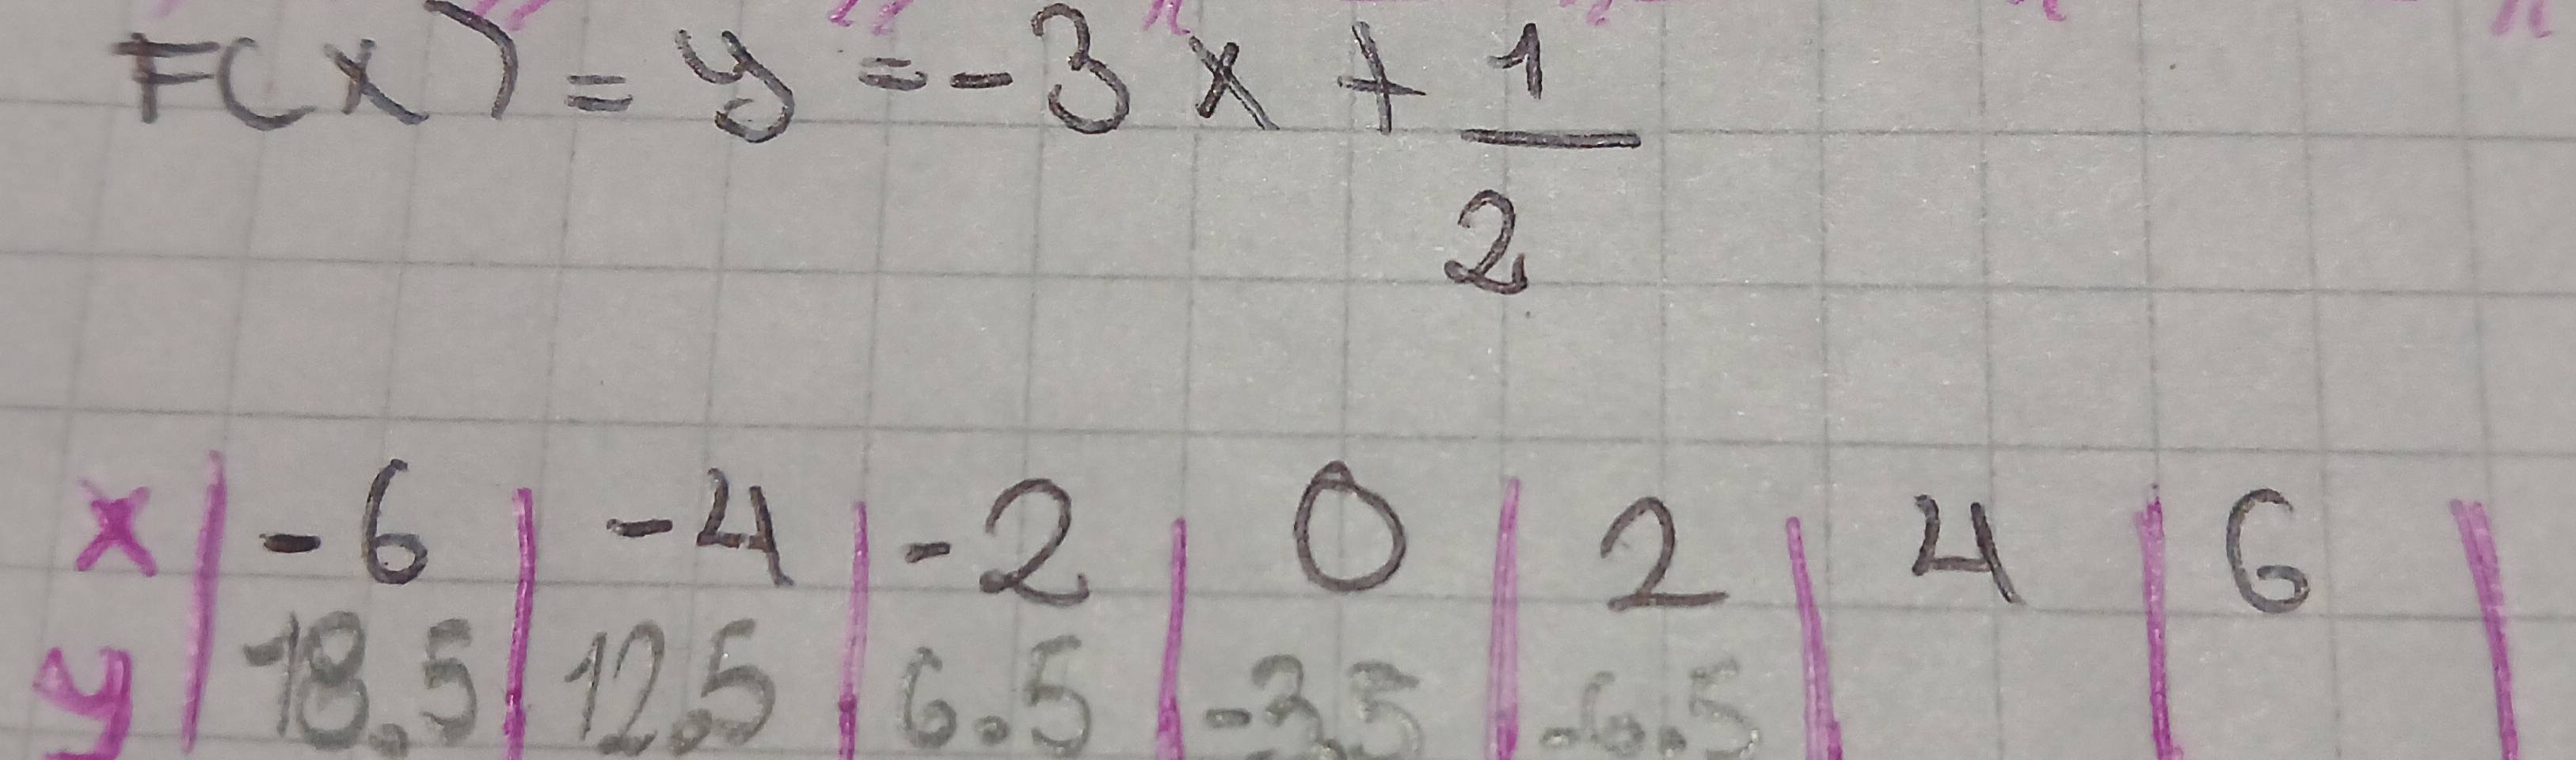 F(x) = y = -3x + 1
2
x | -6 | -4 | -2 | 0 | 2 | 4 | 6 |
y | 18.5 | 12.5 | 6.5 | -3.5 | -6.5 | | |